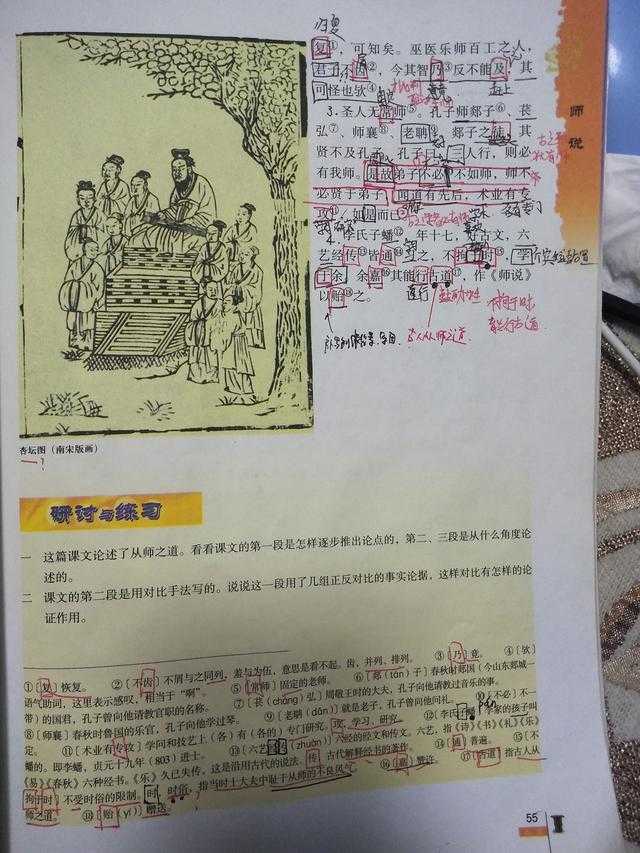 归复
复①，可知矣。巫医乐师百工之人，
君子不齿②，今其智乃③反不能及，其
可怪也欤④！
3.圣人无常师⑤。孔子师郯子⑥、苌
弘⑦、师襄⑧、老聃⑨。郯子之徒，其
贤不及孔子。孔子曰：三人行，则必
有我师。是故弟子不必⑩不如师，师不
必贤于弟子，闻道有先后，术业有专
攻⑪，如是而已。
4.李氏子蟠⑫，年十七，好古文，六
艺经传⑬皆通⑭之，不拘于时⑮，学
于余。余嘉⑯其能行古道⑰，作《师说》
以贻⑱之。
师说
不拘于时
古人从师之道
杏坛图（南宋版画）
研讨与练习
一 这篇课文论述了从师之道。看看课文的第一段是怎样逐步推出论点的，第二、三段是从什么角度论
述的。
二 课文的第二段是用对比手法写的。说说这一段用了几组正反对比的事实论据，这样对比有怎样的论
证作用。
①〔复〕恢复。 ②〔不齿〕不屑与之同列，羞与为伍，意思是看不起。齿，并列、排列。 ③〔乃〕竟。 ④〔欤〕
语气助词，这里表示感叹，相当于“啊”。 ⑤〔常师〕固定的老师。 ⑥〔郯（tán）子〕春秋时郯国（今山东郯城一
带）的国君，孔子曾向他请教官职的名称。 ⑦〔苌（cháng）弘〕周敬王时的大夫，孔子向他请教过音乐的事。
⑧〔师襄〕春秋时鲁国的乐官，孔子向他学过琴。 ⑨〔老聃（dān）〕就是老子，孔子曾向他问礼。 ⑩〔不必〕不一
定。 ⑪〔术业有专攻〕学问和技艺上（各）有（各的）专门研究。攻，学习、研究。 ⑫〔李氏子蟠〕李家的孩子叫
蟠的。即李蟠，贞元十九年（803）进士。 ⑬〔六艺经传（zhuàn）〕六经的经文和传文。六艺，指《诗》《书》《礼》《乐》
《易》《春秋》六种经书。《乐》久已失传，这是沿用古代的说法。传，古代解释经书的著作。 ⑭〔通〕普遍。 ⑮〔不
拘于时〕不受时俗的限制。时，时俗，指当时士大夫中耻于从师的不良风气。 ⑯〔嘉〕赞许。 ⑰〔古道〕指古人从
师之道。 ⑱〔贻（yí）〕赠送。
55